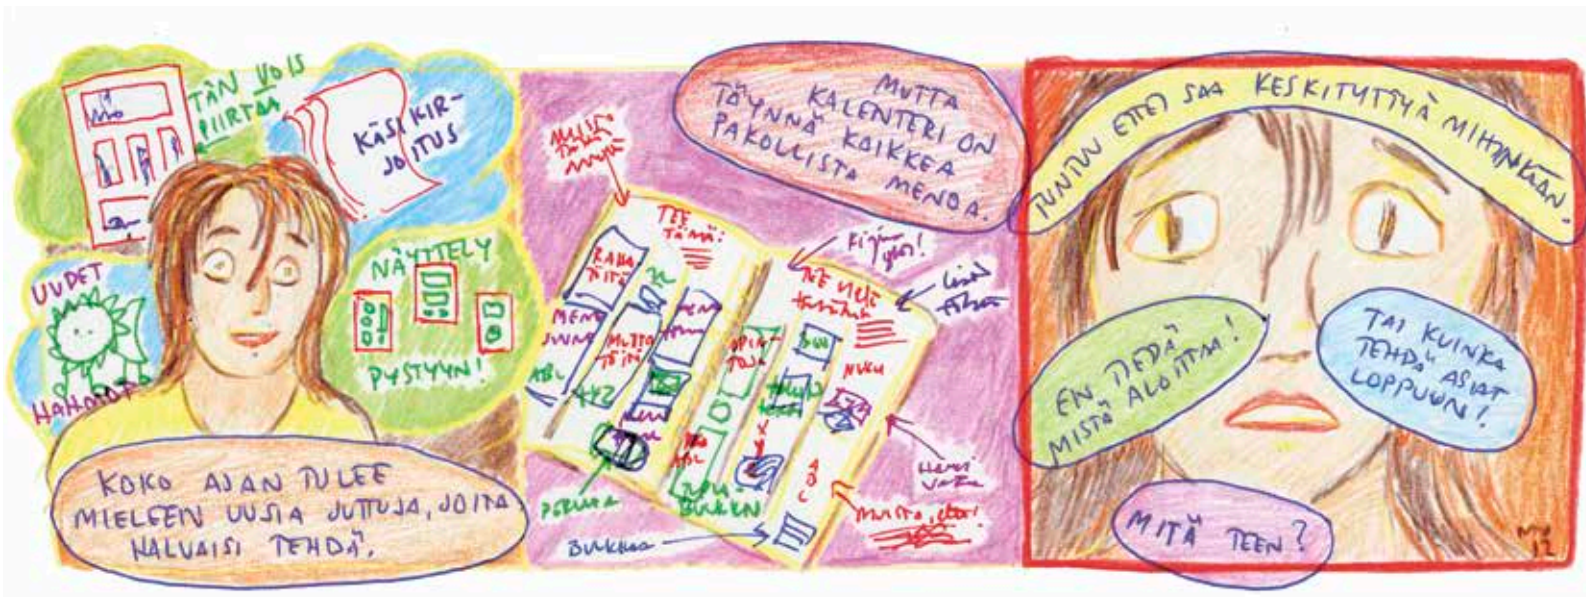 TÄN VOIS
PIIRTÄÄ
KÄSIKIR-
JOITUS
UUDET
HAHMOT
NÄYTTELY
PYSTYYN!
KOKO AJAN TULEE
MIELEEN UUSIA JUTTUJA, JOITA
HALUAISI TEHDÄ.
MUTTA
KALENTERI ON
TÄYNNÄ KAIKKEA
PAKOLLISTA MENOA.
MUISTA
TÄMÄ
MYÖS
TEE
TÄMÄ:
RAHA
TÖITÄ
MENE
SINNE
MUTTA
TÖITÄ
ABL
TEE VIELÄ
OPIN-
TOJA
NUKU
ABL
PERUUTA
BUUKKAA
MUISTA,
TUNTUU ETTEI SAA KESKITYTTYÄ MIHINKÄÄN.
EN TIEDÄ
MISTÄ ALOITTAA!
TAI KUINKA
TEHDÄ ASIAT
LOPPUUN!
MITÄ TEEN?
12